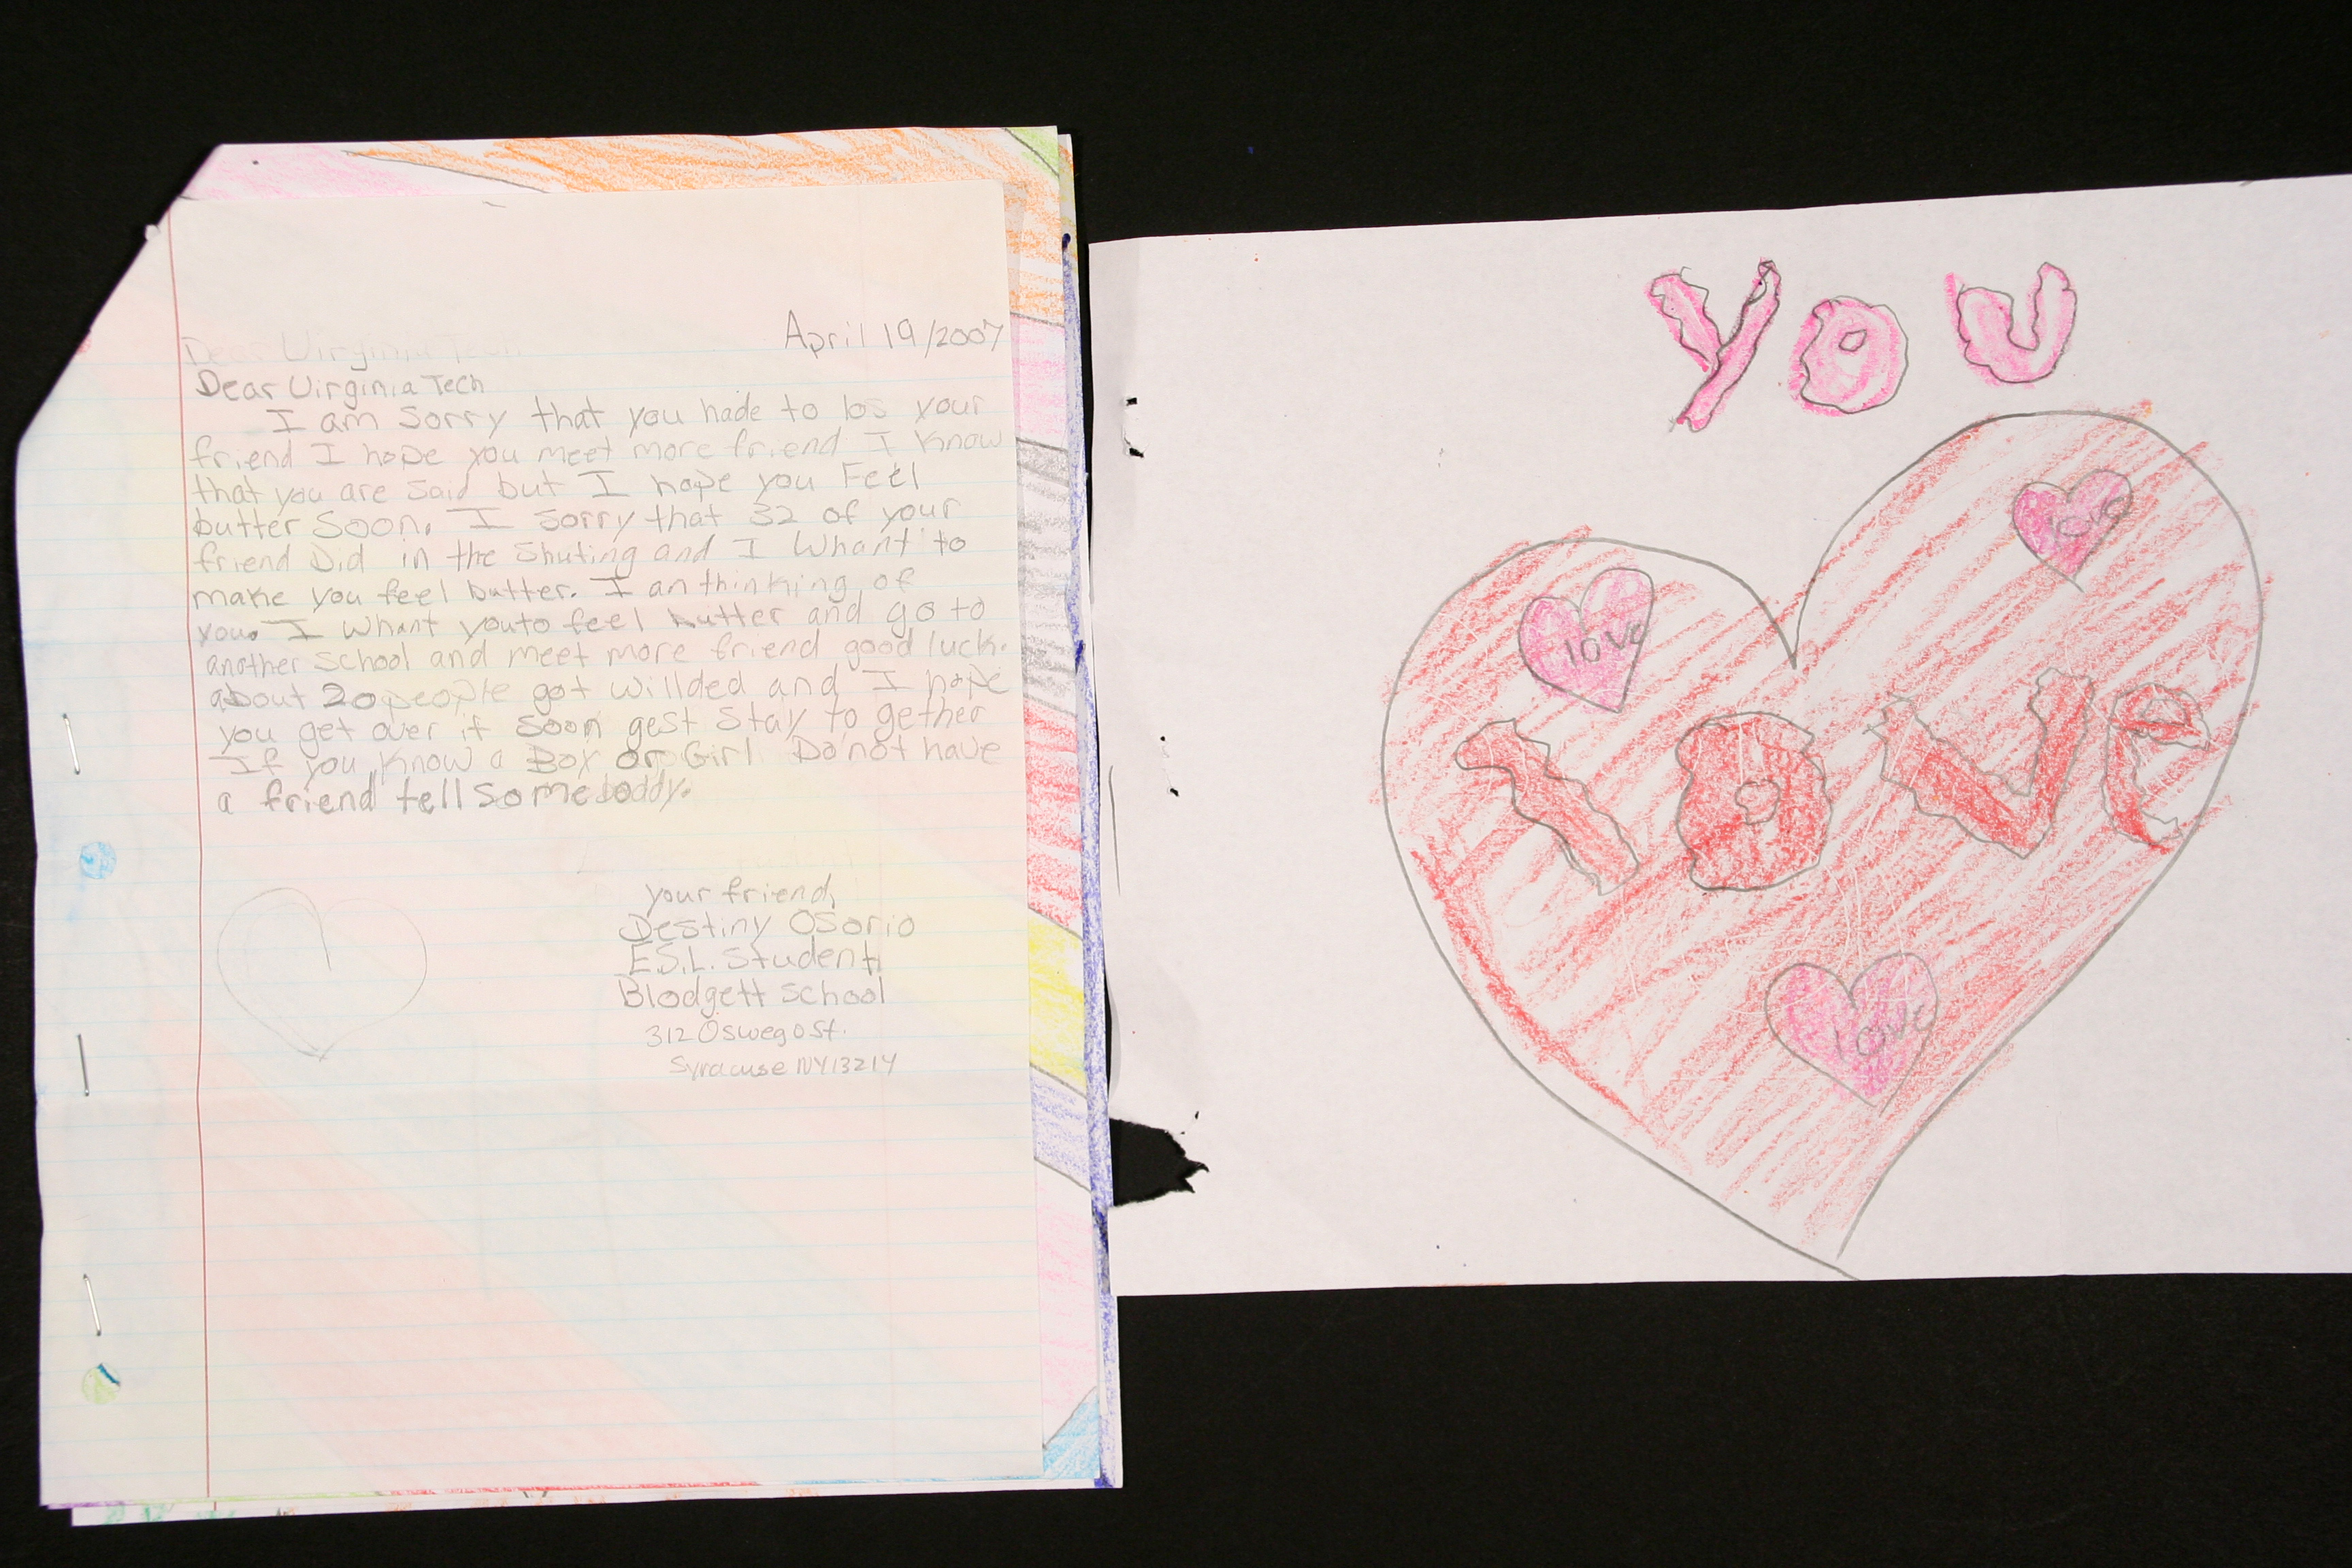 April 19/2007
Dear Virginia Tech
Dear Virginia Tech
I am sorry that you hade to los your
friend I hope you meet more friend I Know
that you are said but I hope you Feel
butter soon. I sorry that 32 of your
friend Did in the Shuting and I Whant to
make you feel butter. I an thinking of
you. I Whant you to feel butter and go to
another school and meet more friend good luck.
about 20 people got willded and I hope
you get over it soon gest stay to gether
If you Know a Boy or Girl Do not have
a friend tell someboddy.
your friend,
Destiny Osorio
E.S.L. Student
Blodgett school
312 Oswego St.
Syracuse NY 13214
YOU
love
love
love
love